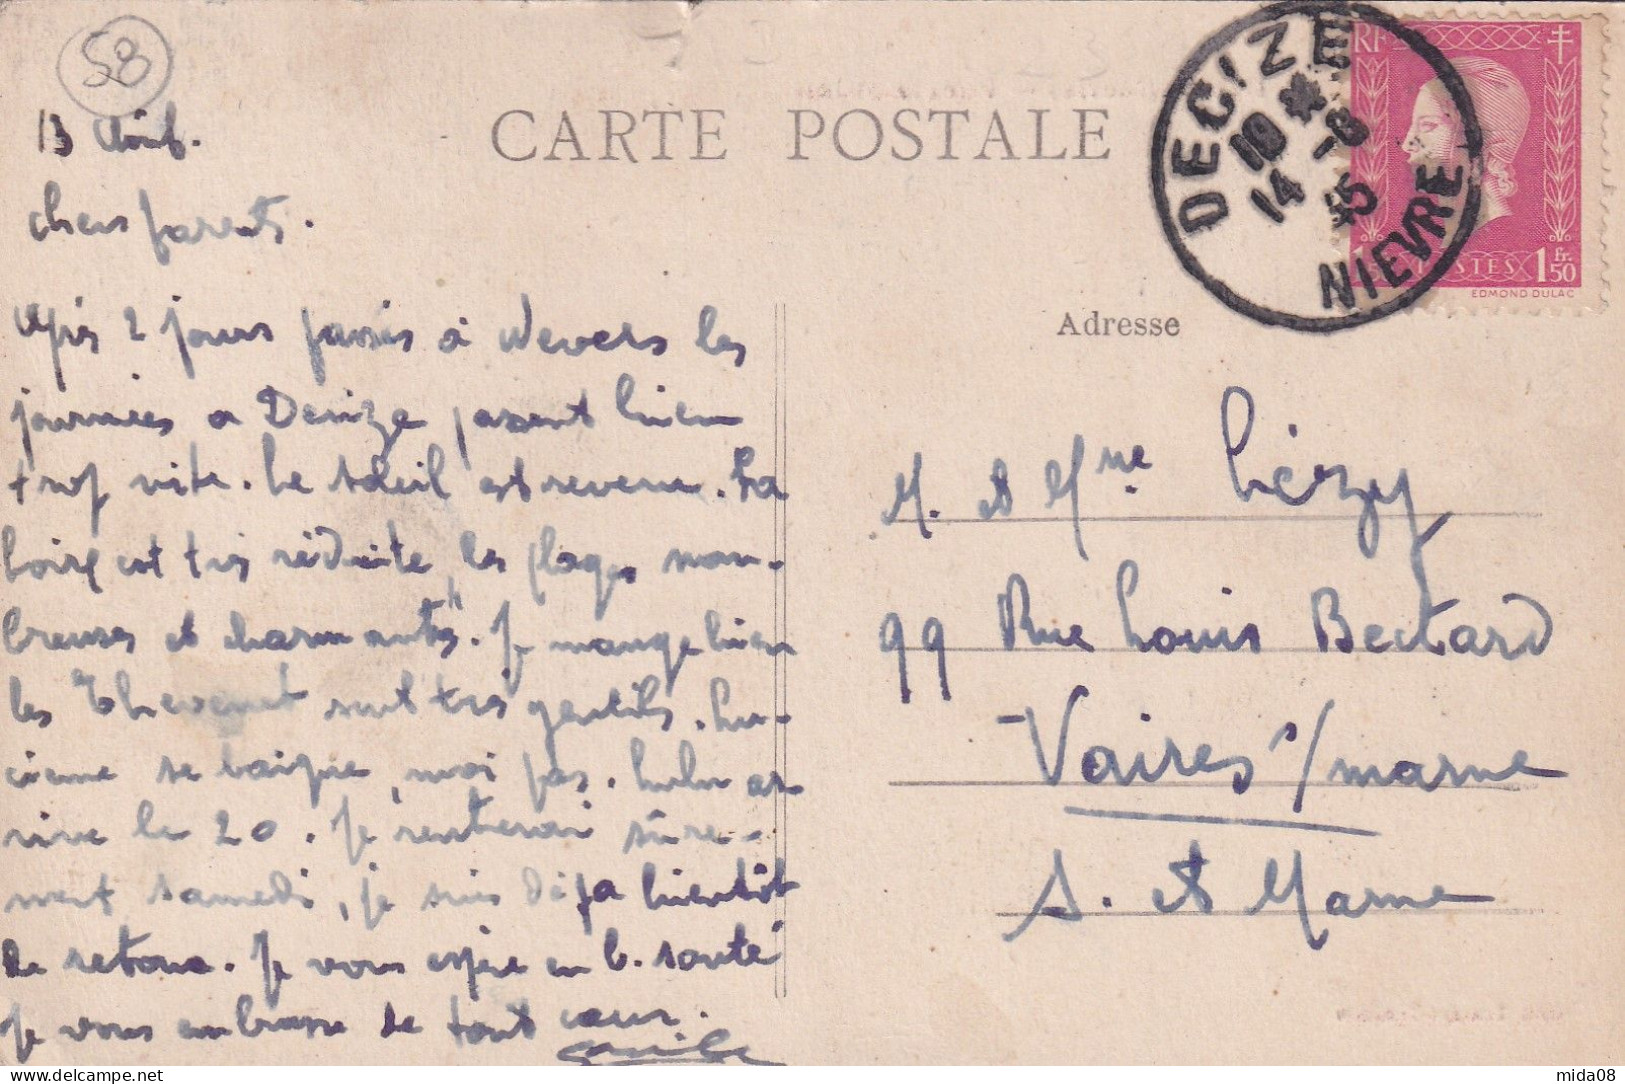 58
13 Août.
CARTE POSTALE
DECIZE
18 *
14 -8
45
NIEVRE
RF
POSTES 1 fr. 50
EDMOND DULAC
chers parents.
Après 2 jours passés à Nevers les
journées à Decize passent bien
trop vite. Le soleil est revenu. La
Loire est très réduite, les plages nom-
breuses et charmantes. Je mange bien
les Thevenet sont très gentils. Lu-
cienne se baigne, moi pas. Lulu ar-
rive le 20. Je rentrerai sûre-
ment samedi, je suis déjà bientôt
de retour. Je vous espère en b. santé
Je vous embrasse de tout cœur.
Adresse
M. et Mme Lézy
99 Rue Louis Bectard
Vaires s/marne
S. et Marne
mida08